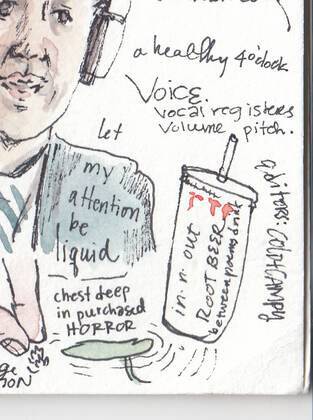 a healthy 4o'clock
Voice.
vocal registers
volume pitch.
let
my
attention
be
liquid
in·n·out
ROOT BEER
between poems drink
chest deep
in purchased
HORROR